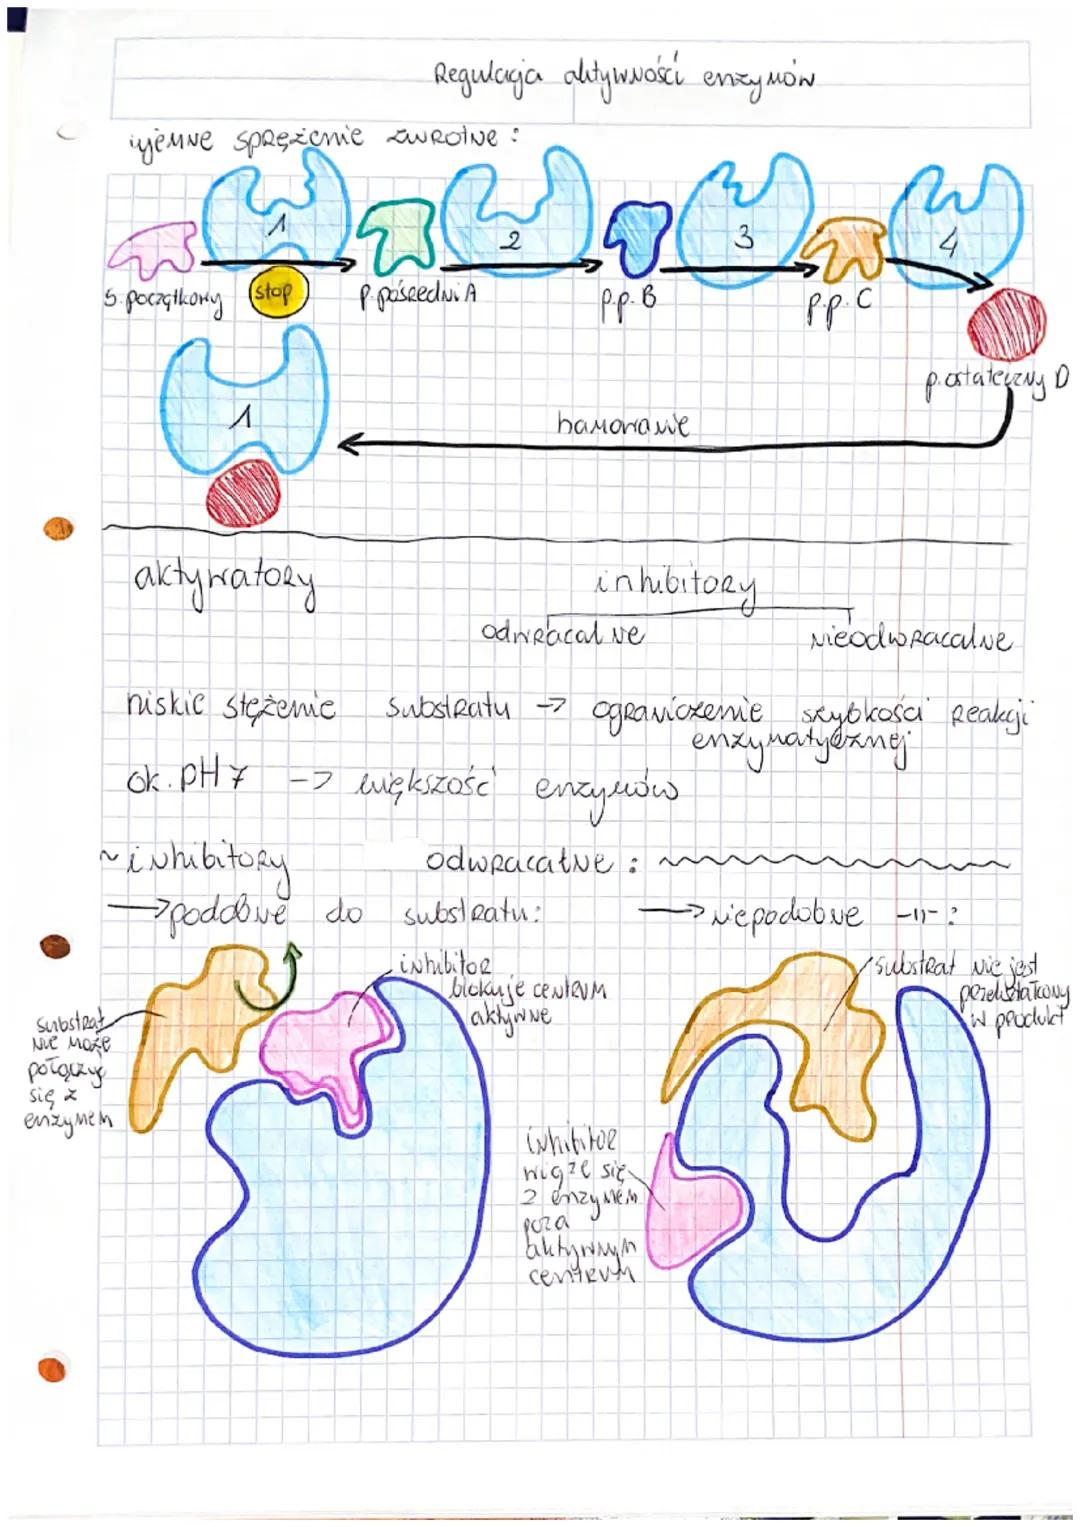 Regulacja aktywności enzymów
ujemne sprężenie zwrotne:
1
2
3
4
S. początkowy
stop
p. pośredni A
p.p. B
p.p. C
p. ostateczny D
1
hamowanie
aktywatory
inhibitory
odwracalne
nieodwracalne
niskie stężenie substratu -> ograniczenie szybkości reakcji
enzymatycznej
ok. pH 7 -> większość enzymów
~inhibitory odwracalne:
->podobne do substratu:
->niepodobne -11-:
inhibitor
blokuje centrum
aktywne
substrat
nie może
połączyć
się z
enzymem
substrat nie jest
przekształcony
w produkt
inhibitor
wiąże się
z enzymem
poza
aktywnym
centrum